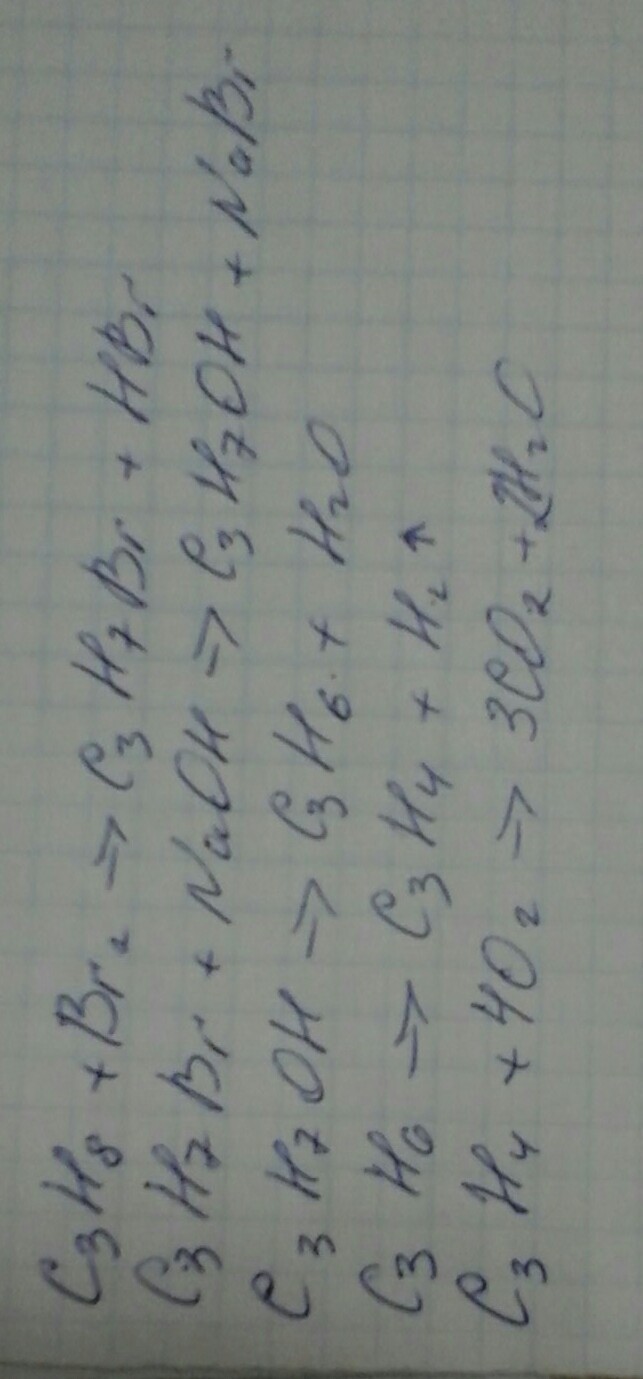 C₃H₈ + Br₂ => C₃H₇Br + HBr
C₃H₇Br + NaOH => C₃H₇OH + NaBr
C₃H₇OH => C₃H₆ + H₂O
C₃H₆ => C₃H₄ + H₂↑
C₃H₄ + 4O₂ => 3CO₂ + 2H₂O